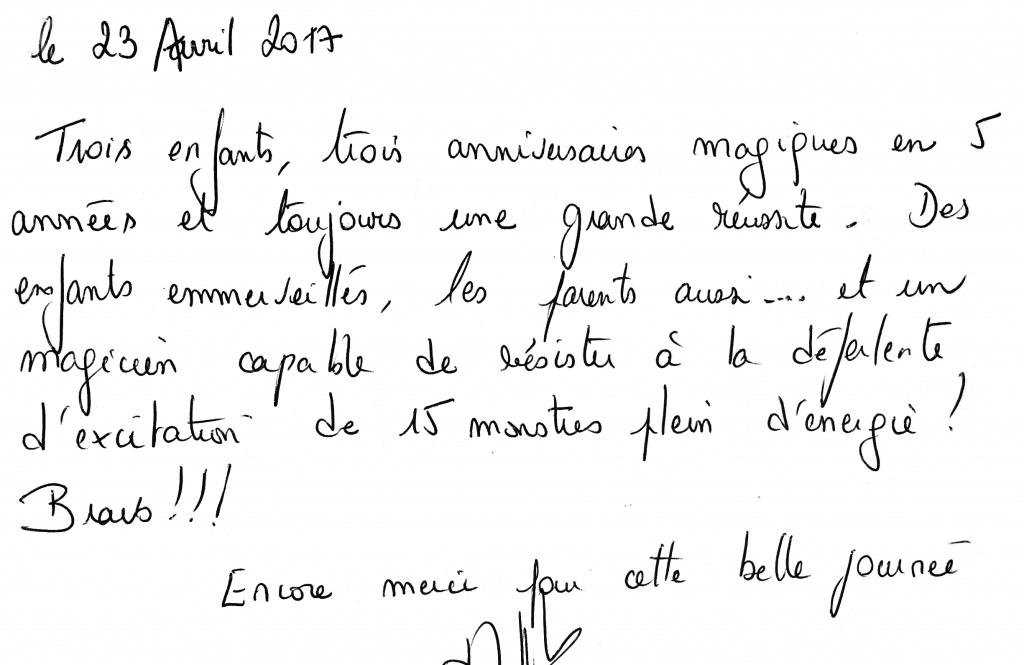 le 23 Avril 2017
Trois enfants, trois anniversaires magiques en 5
années et toujours une grande réussite. Des
enfants emmerveillés, les parents aussi.... et un
magicien capable de résister à la déferlente
d'excitation de 15 monstres plein d'énergie !
Bravo !!!
Encore merci pour cette belle journée